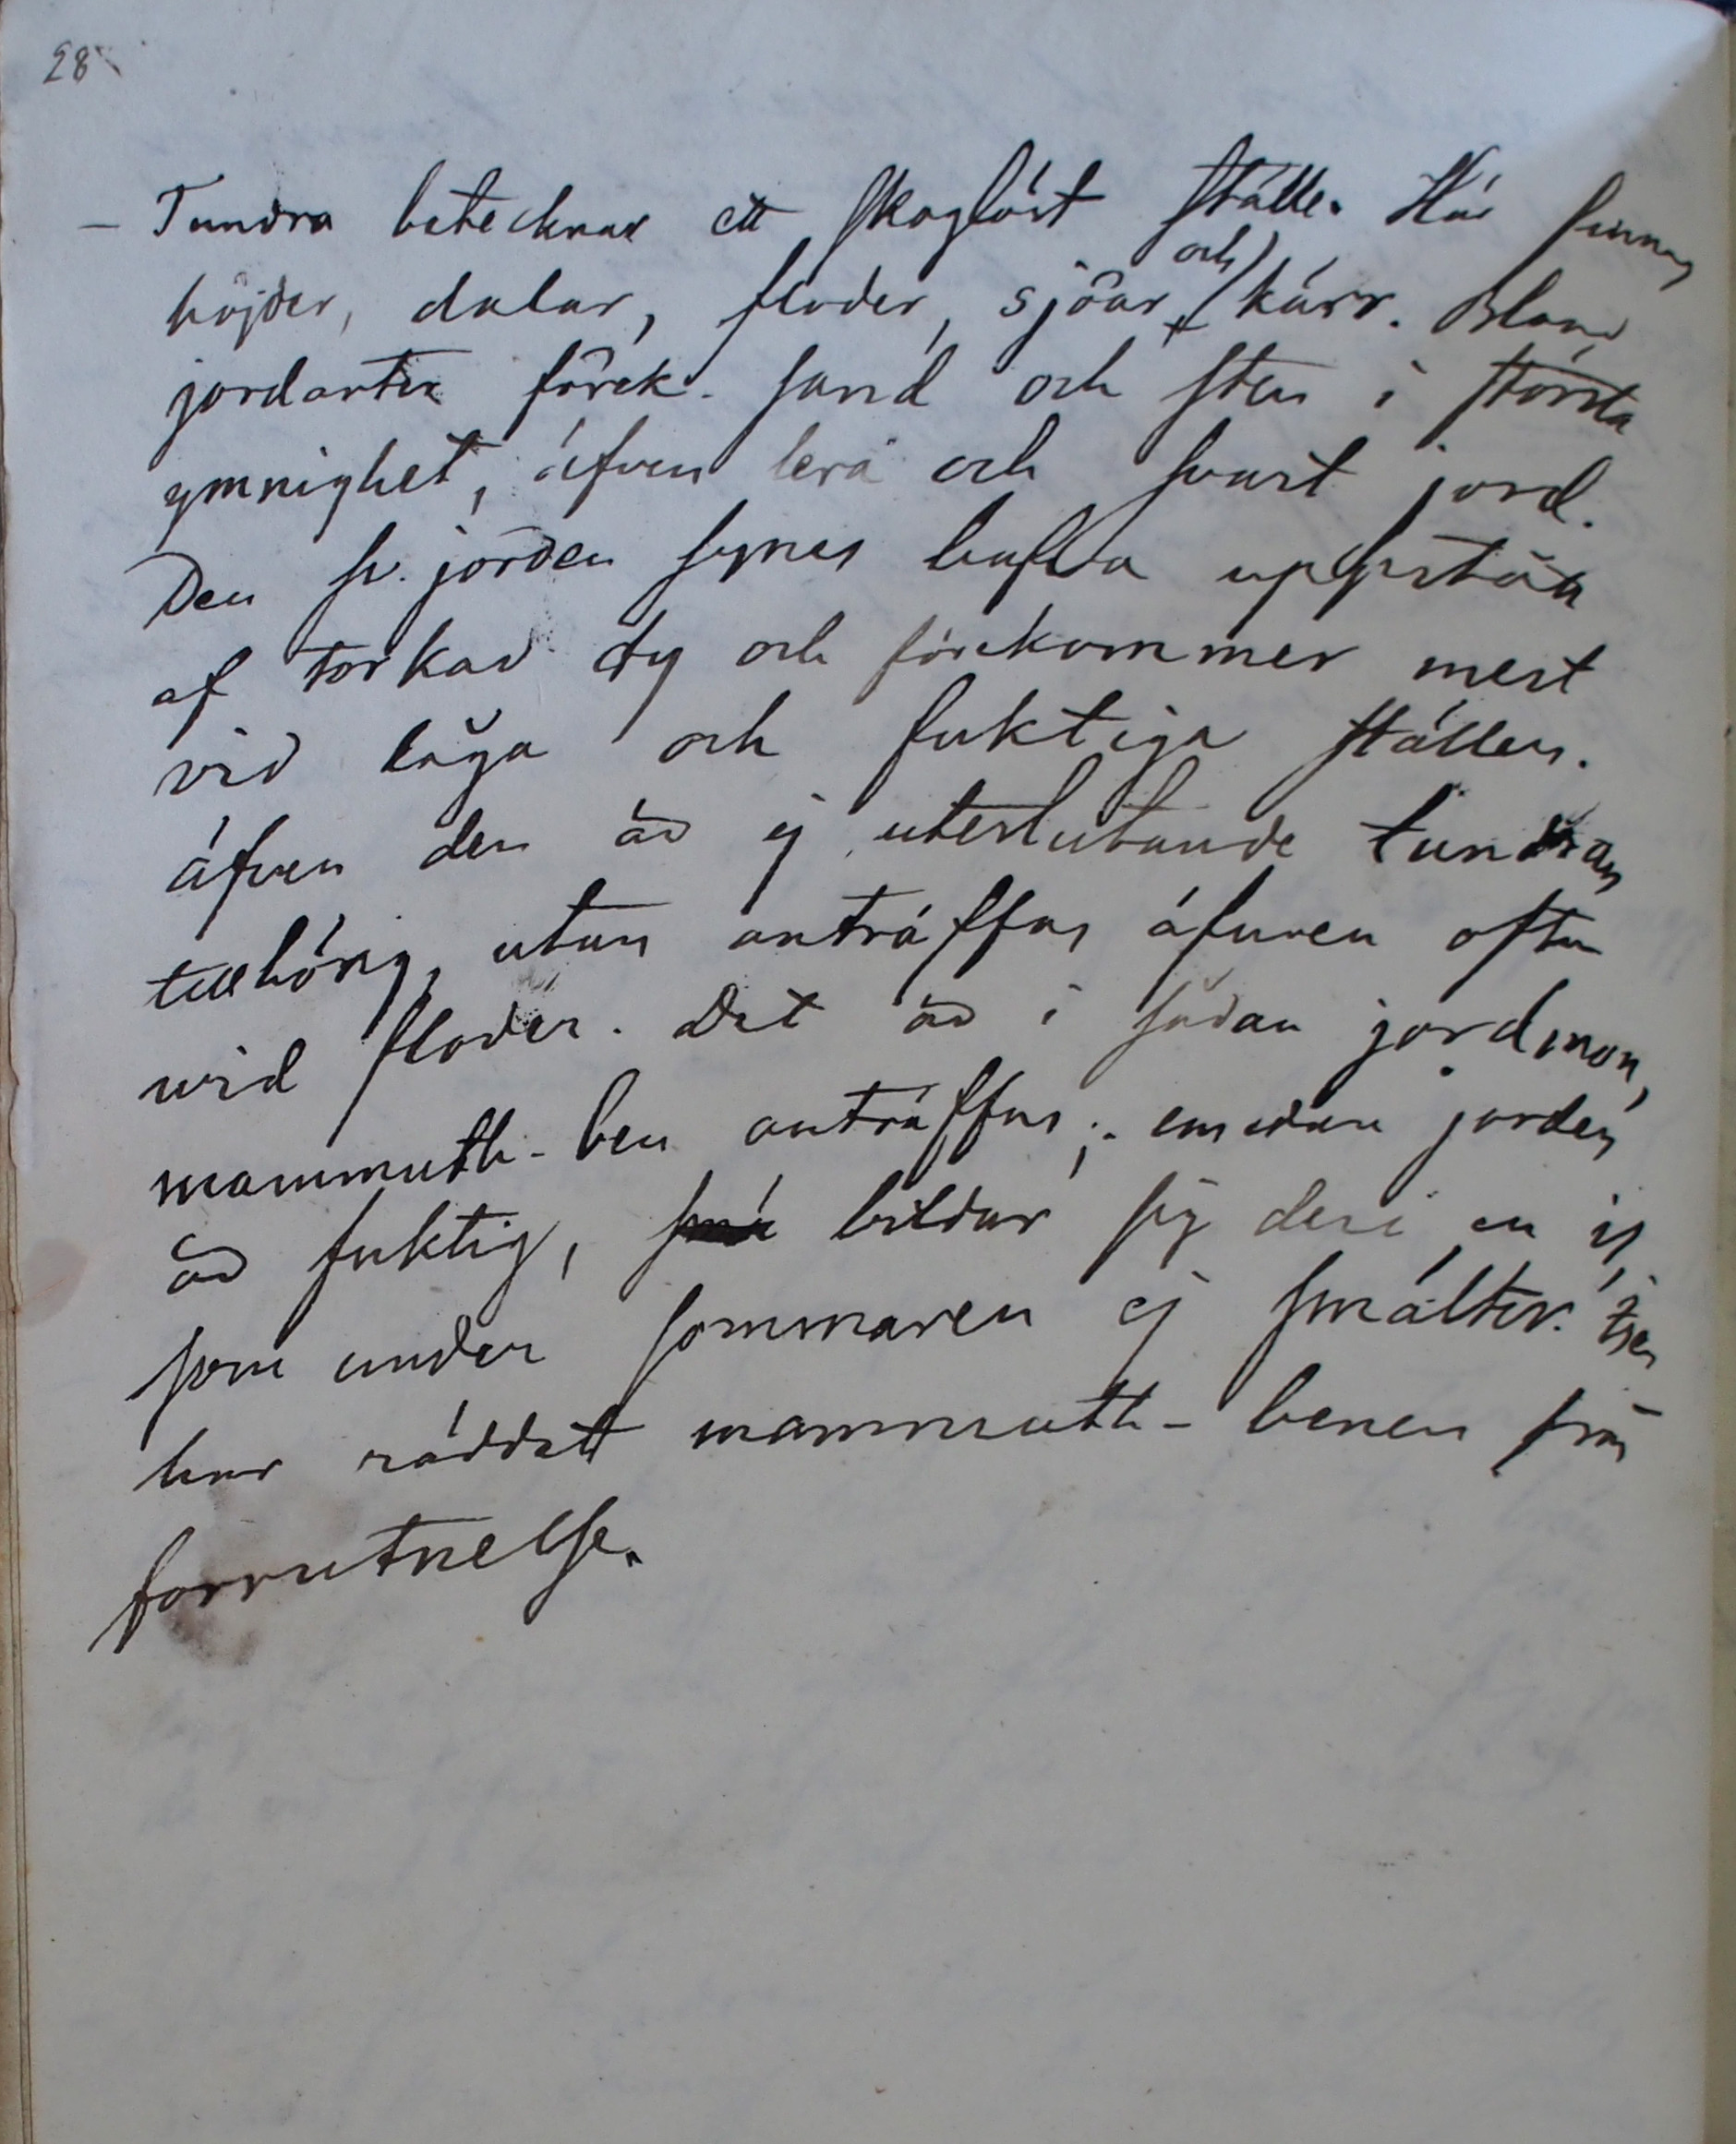 28
– Tundra betecknar ett skoglöst ställe. Här finnas
höjder, dalar, floder, sjöar och kärr. Bland
jordarter förek. sand och sten i största
ymnighet, äfven lera och svart jord.
Den sv. jorden synes hafva uppstått
af torkad dy och förekommer mest
vid låga och fuktiga ställen.
äfven den är ej uteslutande tundran
tillhörig, utan anträffas äfven ofta
wid floder. Det är i sådan jordmon,
mammuth-ben anträffas; emedan jorden
är fuktig, så bildar sig deri en is,
som under sommaren ej smälter. Isen
har räddat mammuth-benen från
förrutnelse.